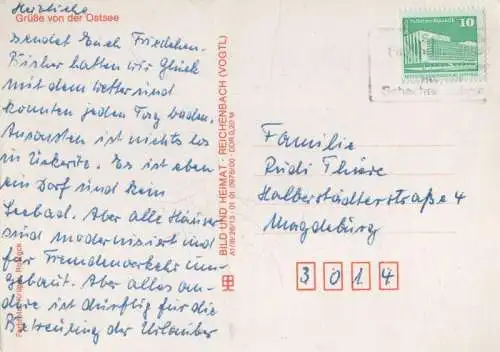 Herzliche
Grüße von der Ostsee
sendet Euch Friedchen.
Bisher hatten wir Glück
mit dem Wetter und
konnten jeden Tag baden.
Ansonsten ist nichts los
in Ückeritz. Es ist eben
ein Dorf und kein
Seebad. Aber alle Häuser
sind modernisiert und
für Fremdenverkehr um-
gebaut. Aber alles an-
dere ist dürftig für die
Betreuung der Urlauber
BILD UND HEIMAT · REICHENBACH (VOGTL)
DDR 0,20 M
10
Familie
Rudi Thiere
Halberstädterstraße 4
Magdeburg
3014